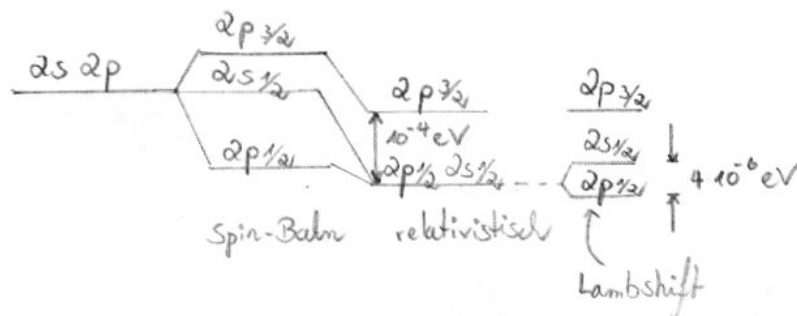 2p 3/2
2s 2p
2s 1/2
2p 3/2
2p 3/2
10⁻⁴ eV
2s 1/2
2p 1/2
2p 1/2 2s 1/2
2p 1/2
4 10⁻⁶ eV
Spin-Bahn
relativistisch
Lambshift